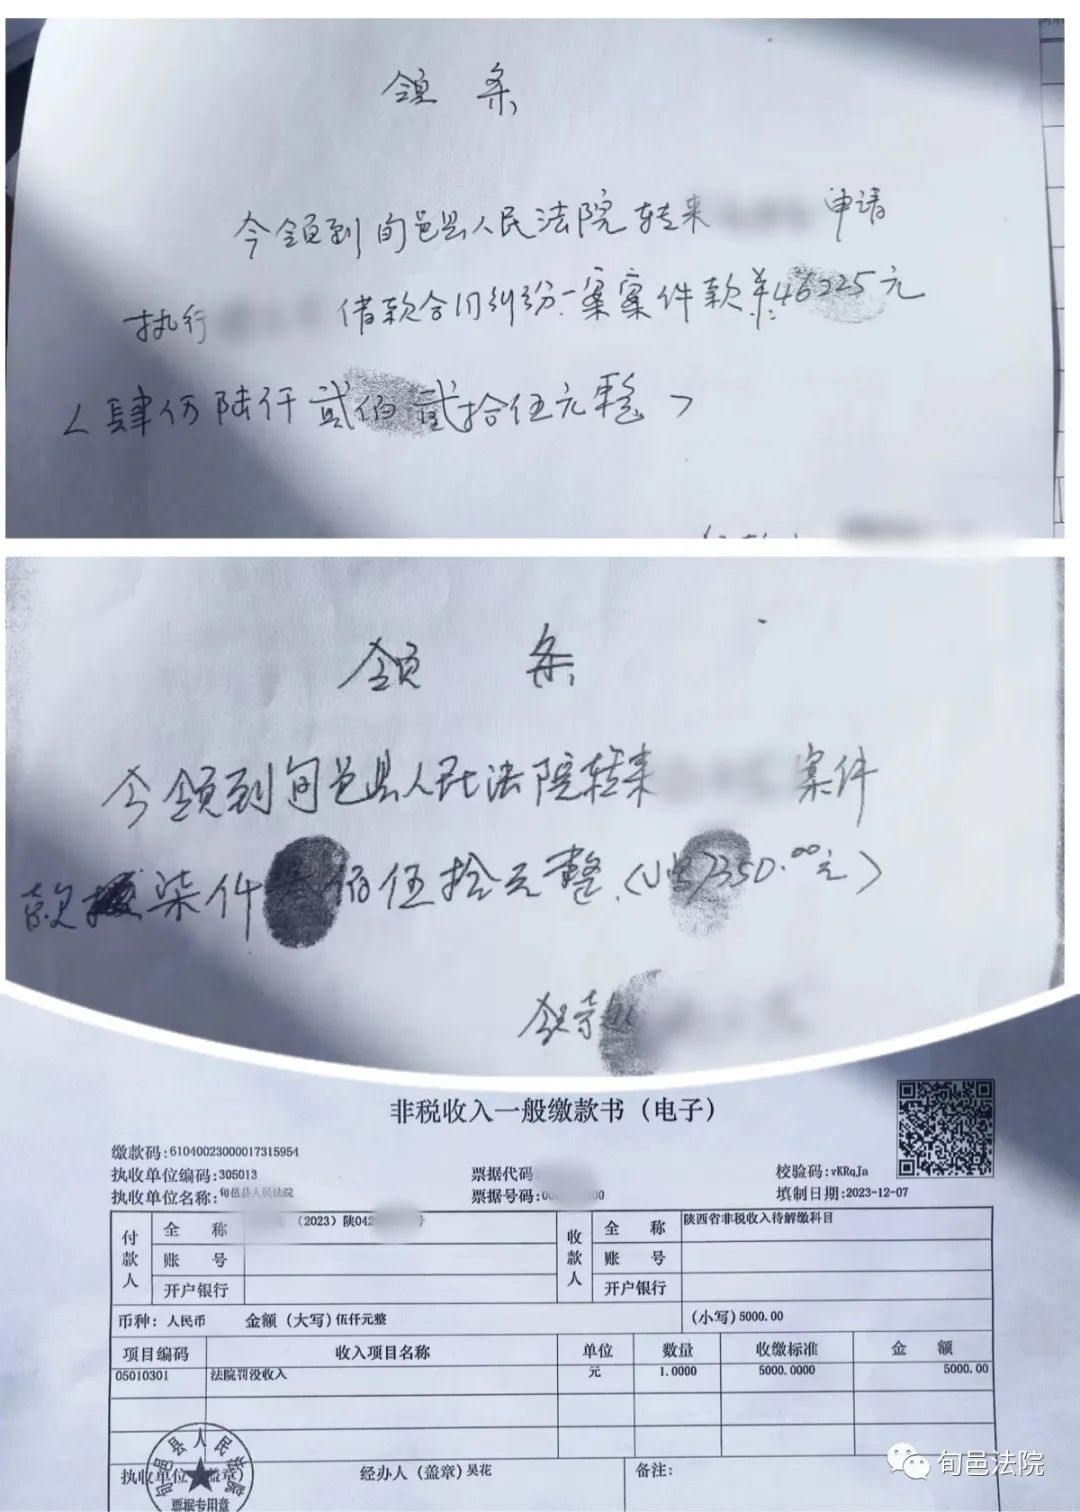 领 条
今领到旬邑县人民法院转来 申请
执行 借款合同纠纷一案案件款¥:46225元
(肆仟陆仟贰佰贰拾伍元整)
领 条
今领到旬邑县人民法院转来 案件
款 柒仟 佰伍拾元整.(小写7350.00元)
领条人
非税收入一般缴款书（电子）
缴款码:61040023000017315954
执收单位编码:305013 票据代码 校验码:vKRqJa
执收单位名称:旬邑县人民法院 票据号码:00 00 填制日期:2023-12-07
付款人 全 称 （2023）陕042 号 收款人 全 称 陕西省非税收入待解缴科目
账 号 账 号
开户银行 开户银行
币种: 人民币 金额（大写）伍仟元整 (小写)5000.00
项目编码 收入项目名称 单位 数量 收缴标准 金 额
05010301 法院罚没收入 元 1.0000 5000.0000 5000.00
执收单位（盖章） 经办人（盖章）吴花 备注:
旬邑县人民法院
票据专用章
旬邑法院